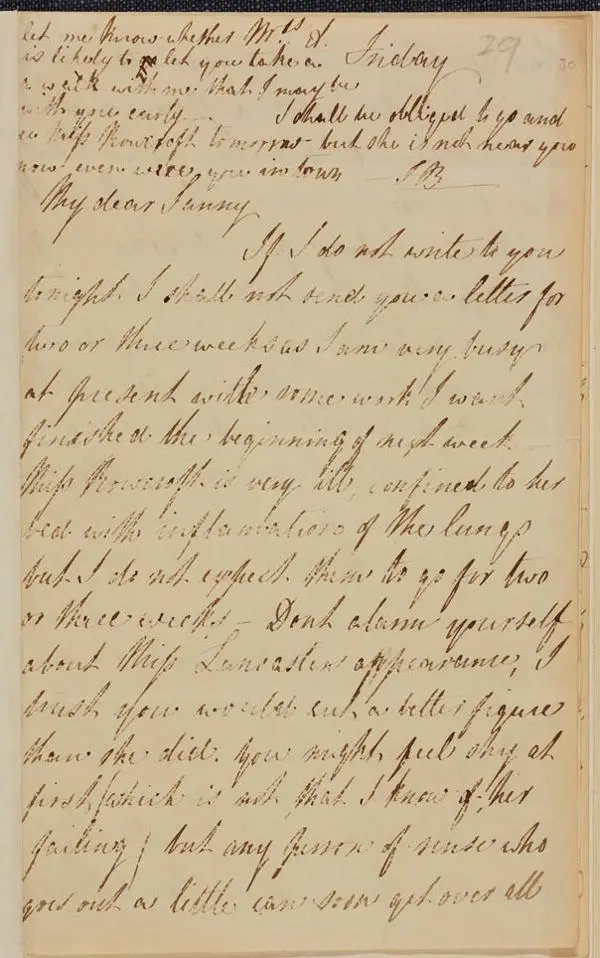 let me know whether Mrs. d.
is likely to let you take a Friday 29 30
a walk with me that I may be
with you early — I shall be obliged to go and
see Miss Rowcroft tomorrow but she is not near you
now even were you in town — SB
My dear Fanny
If I do not write to you
tonight I shall not send you a letter for
two or three weeks as I am very busy
at present with some work I want
finished the beginning of next week
Miss Rowcroft is very ill, confined to her
bed with inflamation of the lungs
but I do not expect them to go for two
or three weeks — Dont alarm yourself
about Miss Lancasters appearance, I
trust you would cut a better figure
than she did. You might feel shy at
first (which is not that I know of her
failing) but any person of sense who
goes out a little can soon get over all